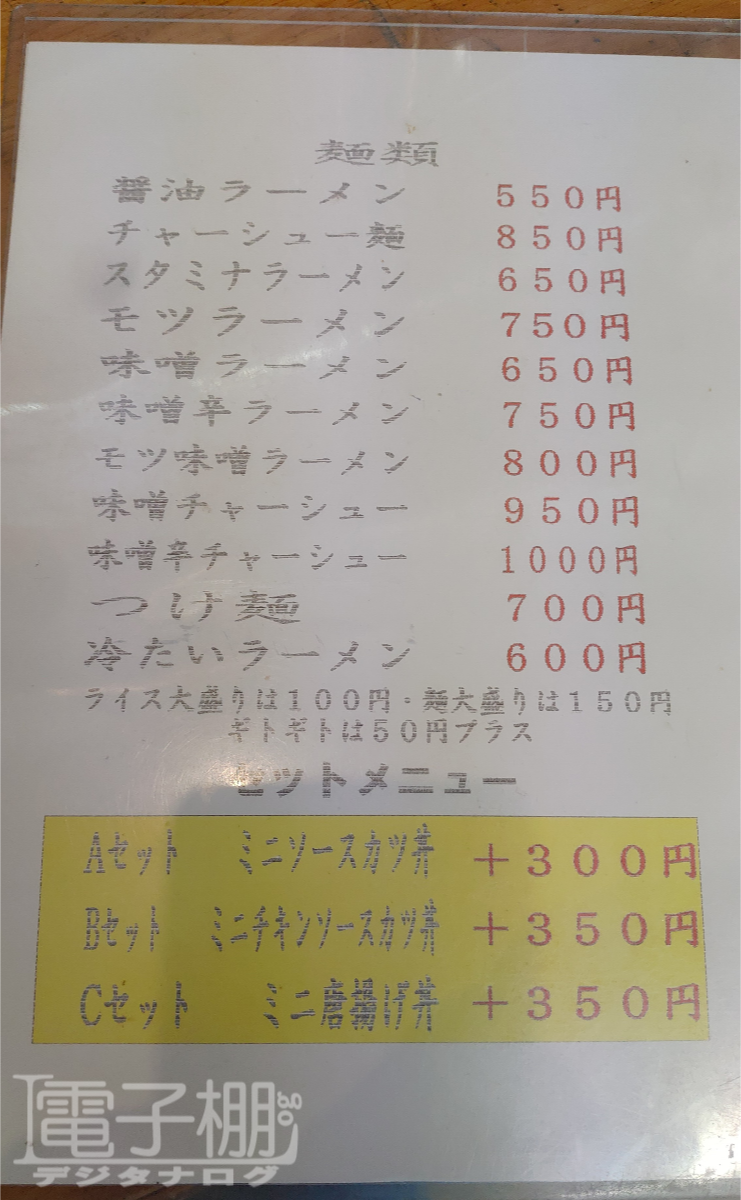 麺類
醤油ラーメン 550円
チャーシュー麺 850円
スタミナラーメン 650円
モツラーメン 750円
味噌ラーメン 650円
味噌辛ラーメン 750円
モツ味噌ラーメン 800円
味噌チャーシュー 950円
味噌辛チャーシュー 1000円
つけ麺 700円
冷たいラーメン 600円
ライス大盛りは100円・麺大盛りは150円
ギトギトは50円プラス
セットメニュー
Aセット ミニソースカツ丼 +300円
Bセット ミニチキンソースカツ丼 +350円
Cセット ミニ +350円
電子棚go
デジタナログ